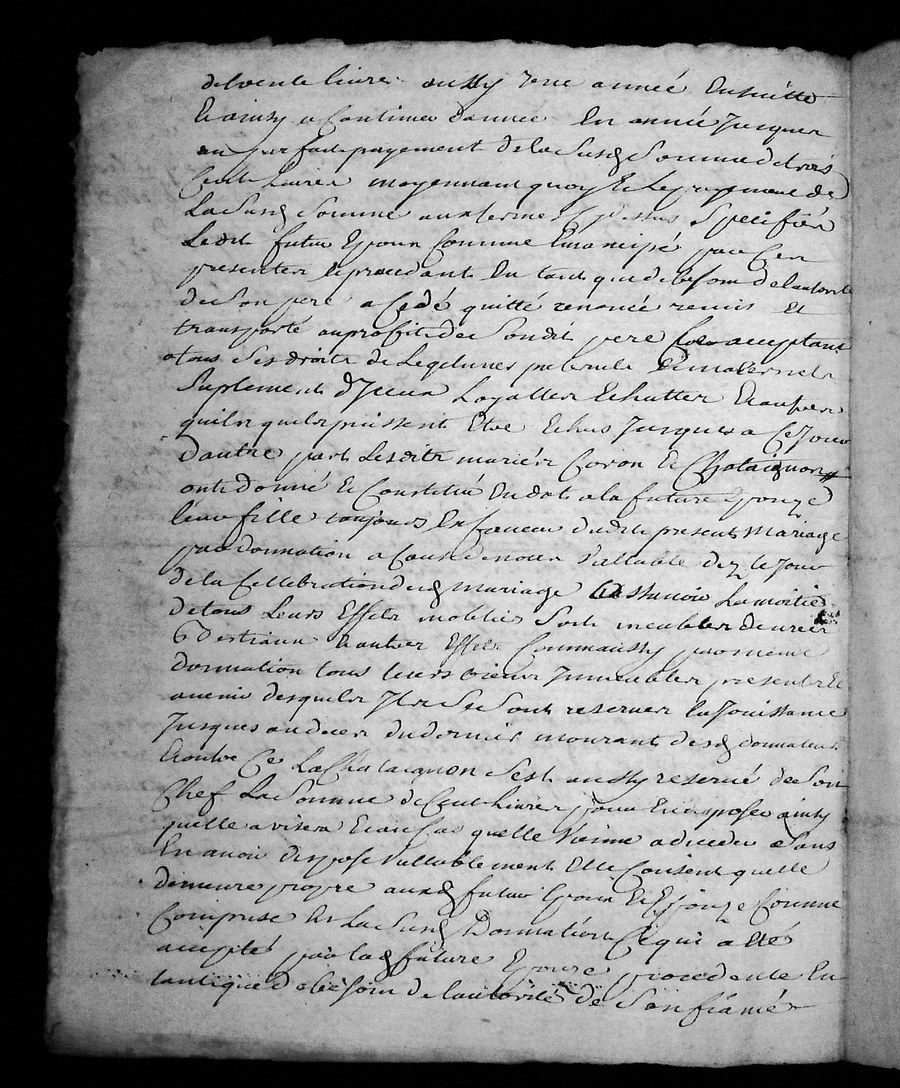 de trente livres aussy une année En suitte
Et ainsy a Continuer dannée En année Jusques
au parfait payement de la Susd Somme de trois
Cents Livres moyennant quoy Et le payement de
La Susd Somme aux termes Cy dessus Specifiés
Ledit futur Epoux Comme Emancipé par Ces
presentes Et procedant En tant que de besoin de lautorité
de Son pere a Cedé quitté renoncé remis Et
transporté au profit de Sondit pere acceptant
tous Ses droits de Legitimes paternels Et maternels
Suplement dJceux Loyattes Echuttes Et autres
quils quils puissent Etre Echus Jusques a Ce Jour
dautre part Lesdits mariés Coron Et Chataignon
ont donné Et Constitué En dot a la future Epouze
leur fille toujours En faveur dudit present Mariage
par donnation a Cause de noces Vallable dez le Jour
de la Cellebration dud mariage Lamoitié
de tous Leurs Effets mobiliers Soit meubles denrées
Bestiaux Et autres Effets Comm aussy par meme
donnation tous leurs biens Jmmeubles presents Et
avenir desquels Jls Se Sont reserves la Jouissance
Jusques au deces du dernier mourant desd donnateurs
Et outre Ce La Chataignon Sest aussy reservé de Son
Chef La Somme de Cent Livres pour En disposer ainsy
quelle avisera Et au Cas quelle Vienne a deceder Sans
En avoir disposé Vallablement Elle Consent quelle
demeure propre auxd futurs Epoux Et Epouze Comme
Comprise En La Susd Donnation Ce qui a Eté
accepté par lad future Epouse procedante En
tant que de besoin de lautorité de Son fiancé